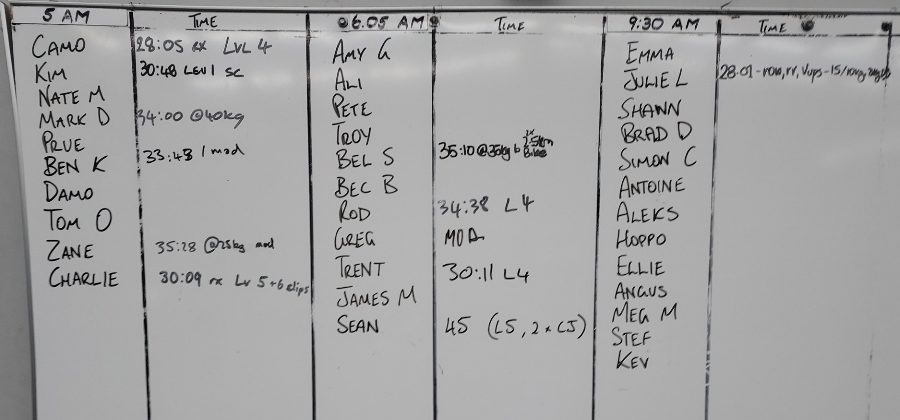 5 AM TIME 6.05 AM TIME 9:30 AM TIME
CAMO 28:05 rx LVL 4 AMY G EMMA
KIM 30:48 LEVL 1 SC ALI JULIE L 28.01 - row, rr, vups - 15/
NATE M PETE SHAWN
MARK D 34:00 @40kg TROY BRAD D
PRUE BEL S 35:10 @35kg SIMON C
BEN K 33:43 / mod BEC B ANTOINE
DAMO ROD 34:38 L4 ALEKS
TOM O GREG MOD HOPPO
ZANE 35:28 @25kg mod TRENT 30:11 L4 ELLIE
CHARLIE 30:09 rx Lv 5+6 clips JAMES M ANGUS
SEAN 45 (L5, 2 x CJ) MEG M
STEF
KEV